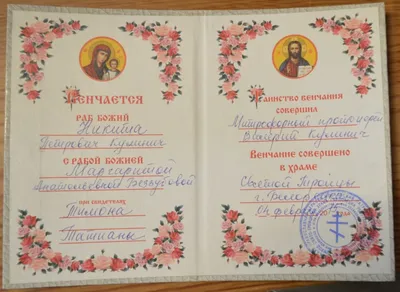 Венчается
раб Божий
Никита
Петрович Кулинич
с рабой Божией
Маргаритой
Анатольевной
при свидетелях
Тимона
Татианы
Таинство венчания
совершил
Митрофорный протоиерей
Валерий Кулинич
Венчание совершено
в храме
Святной Троицы
г.
04 февраля